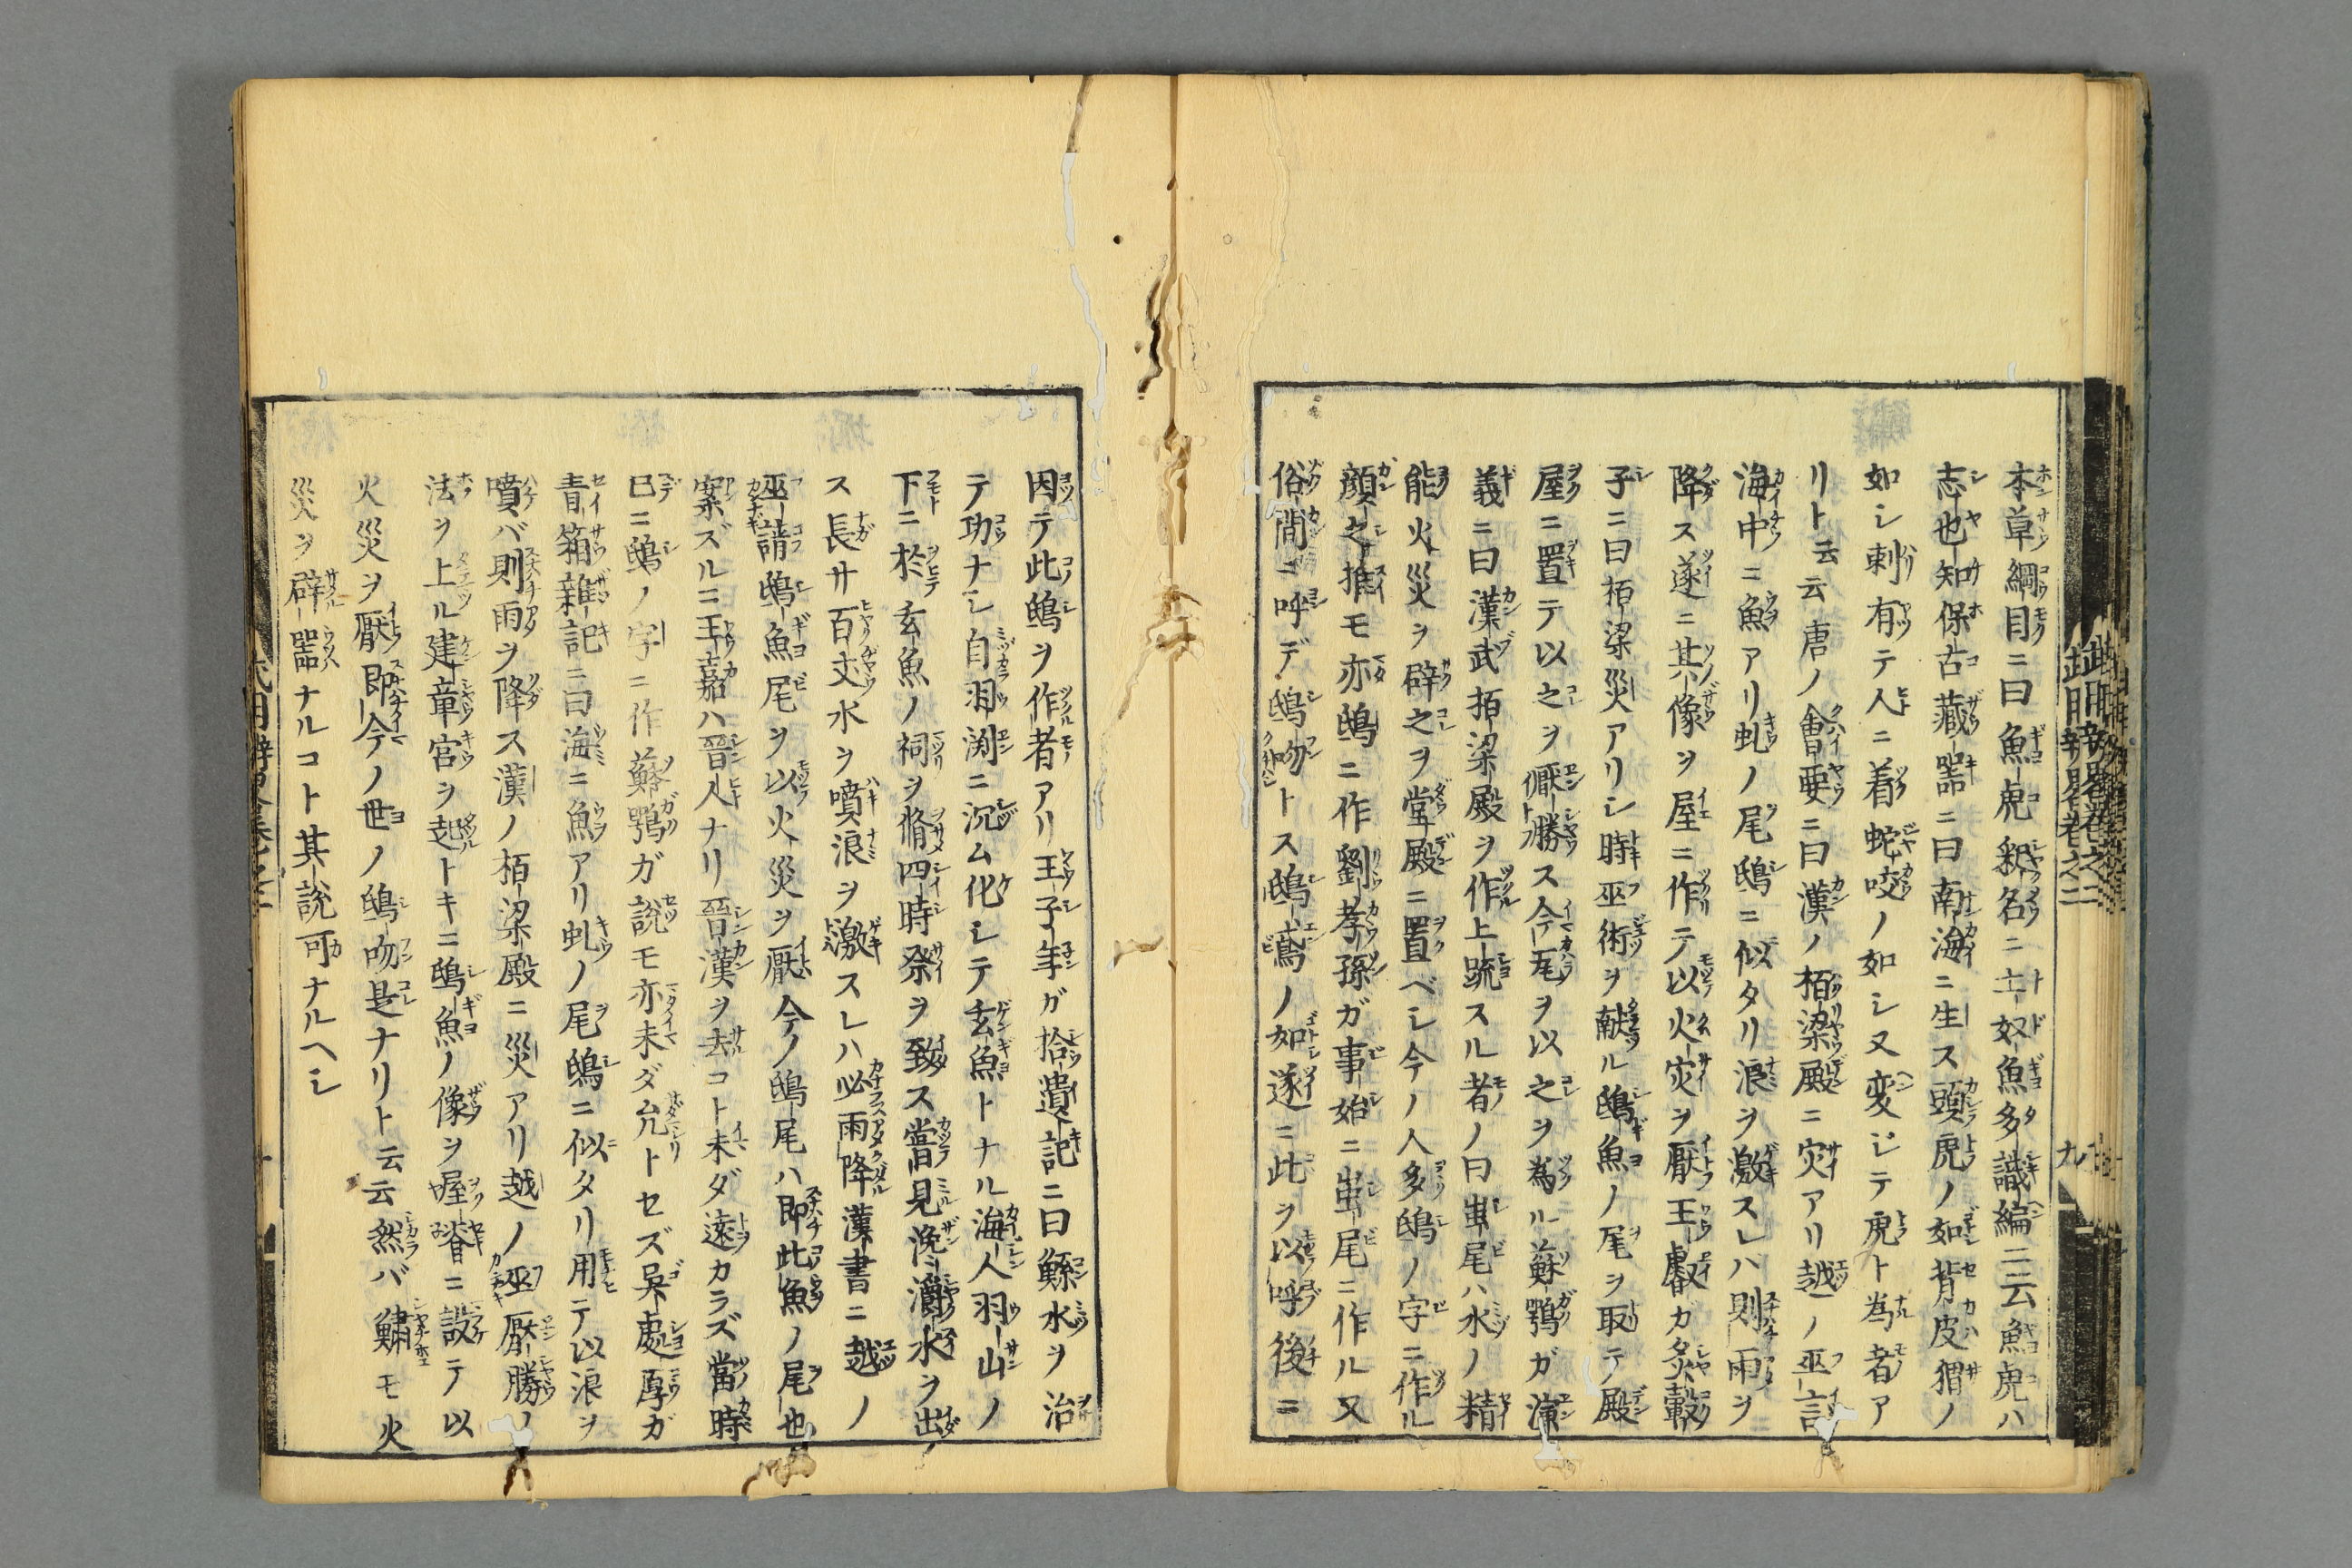 本草綱目ニ曰魚虎釈名ニ土奴魚多識編ニ云魚虎ハ
志也知保古藏噐ニ曰南海ニ生ス頭虎ノ如背皮猬ノ
如シ刺有テ人ニ着蛇咬ノ如シ又変ジテ虎ト為者ア
リト云云唐ノ會要ニ曰漢ノ栢梁殿ニ灾アリ越ノ巫言
海中ニ魚アリ虬ノ尾鴟ニ似タリ浪ヲ激スレハ則雨ヲ
降ス遂ニ其像ヲ屋ニ作テ以火灾ヲ厭王叡ガ炙轂
子ニ曰栢梁災アリシ時巫術ヲ献ル鴟魚ノ尾ヲ取テ殿
屋ニ置テ以之ヲ厭勝ス今瓦ヲ以之ヲ為ル蘇鶚ガ演
義ニ曰漢武栢梁殿ヲ作上疏スル者ノ曰蚩尾ハ水ノ精
能火災ヲ辟之ヲ堂殿ニ置ベシ今ノ人多鴟ノ字ニ作ル
顔之推モ亦鴟ニ作劉孝孫ガ事始ニ蚩尾ニ作ル又
俗間ニ呼デ鴟吻トス鴟鳶ノ如遂ニ此ヲ以呼後ニ
因テ此鴟ヲ作者アリ王子年ガ拾遺記ニ曰鯀水ヲ治
テ功ナシ自羽渕ニ沉ム化シテ玄魚トナル海人羽山ノ
下ニ於玄魚ノ祠ヲ脩四時祭ヲ致ス甞見瀺灂水ヲ出
ス長サ百丈水ヲ噴浪ヲ激スレハ必雨降漢書ニ越ノ
巫請鴟魚尾ヲ以火災ヲ厭今ノ鴟尾ハ即此魚ノ尾也
案ズルニ王嘉ハ晉人ナリ晉漢ヲ去コト未ダ遠カラズ當時
已ニ鴟ノ字ニ作蘇鶚ガ說モ亦未ダ允トセズ吳處厚ガ
青箱雜記ニ曰海ニ魚アリ虬ノ尾鴟ニ似タリ用テ以浪ヲ
噴バ則雨ヲ降ス漢ノ栢梁殿ニ災アリ越ノ巫厭勝ノ
法ヲ上ル建章宮ヲ起トキニ鴟魚ノ像ヲ屋脊ニ設テ以
火災ヲ厭即今ノ世ノ鴟吻是ナリト云云然バ鱐モ火
災ヲ辟噐ナルコト其說可ナルヘシ